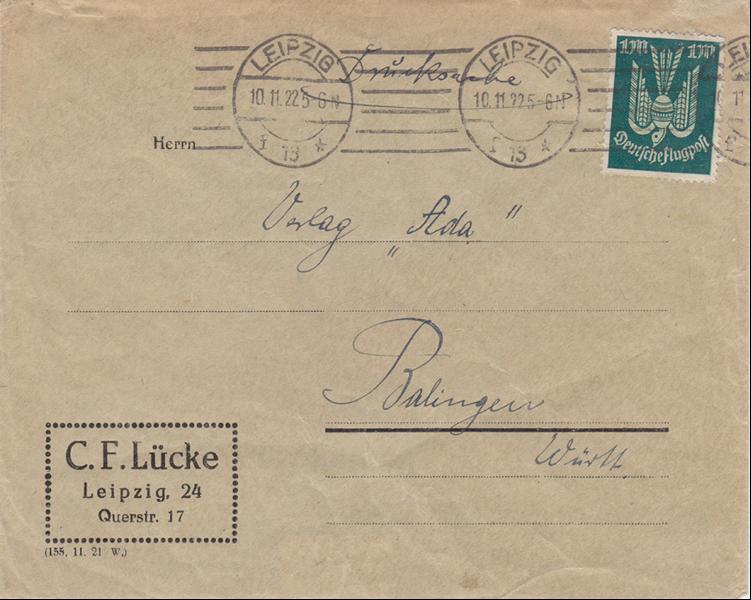 LEIPZIG
10.11.22 5-6 N
* 13 *
Drucksache
LEIPZIG
10.11.22 5-6 N
* 13 *
Deutsche flugpost
Herrn
Verlag „Ada"
Balingen
Württ.
C. F. Lücke
Leipzig, 24
Querstr. 17
(155, 11. 21 W.)